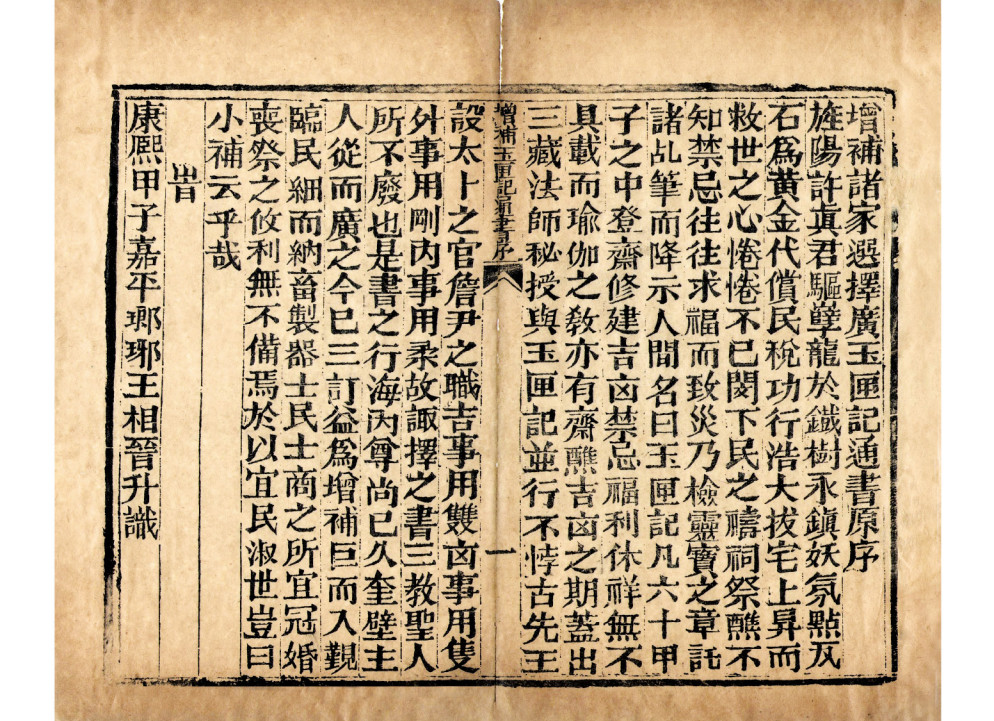 增補諸家選擇廣玉匣記通書原序
旌陽許眞君驅孽龍於鐵樹永鎮妖氛點瓦
石爲黃金代償民稅功行浩大拔宅上昇而
救世之心惓惓不已閔下民之禱祠祭醮不
知禁忌往往求福而致災乃檢靈寶之章託
諸乩筆而降示人間名曰玉匣記凡六十甲
子之中登齋修建吉凶禁忌福利休祥無不
具載而瑜伽之敎亦有齋醮吉凶之期葢出
三藏法師秘授與玉匣記並行不悖古先王
增補玉匣記通書序
一
設太卜之官詹尹之職吉事用雙凶事用隻
外事用剛內事用柔故諏擇之書三教聖人
所不廢也是書之行海內尊尚已久奎壁主
人從而廣之今已三訂益爲增補巨而入覲
臨民細而納畜製器士民士商之所宜冠婚
喪祭之攸利無不備焉於以宜民淑世豈曰
小補云乎哉
旹
康熙甲子嘉平瑯琊王相晉升識